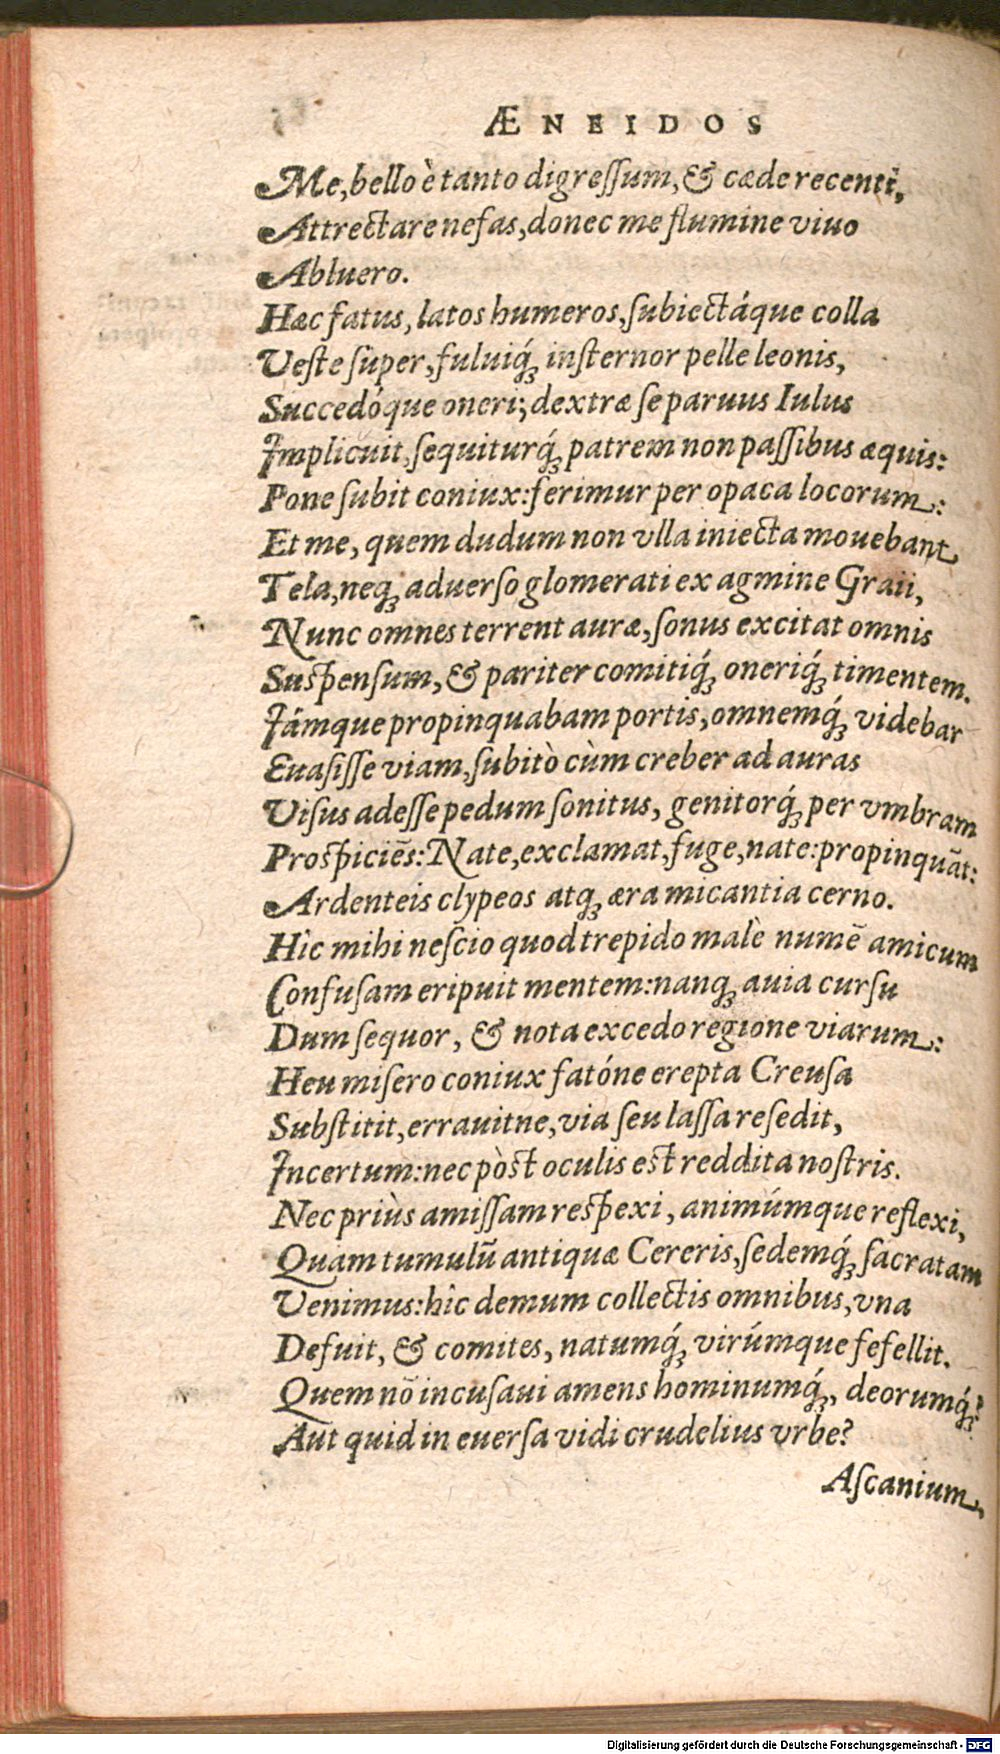 ÆNEIDOS
Me, bello è tanto digreſſum, & cæde recenti,
Attrectare nefas, donec me flumine viuo
Abluero.
Hæc fatus, latos humeros, ſubiectáque colla
Veſte ſuper, fuluiq́; inſternor pelle leonis,
Succedóque oneri; dextræ ſe paruus Iulus
Implicuit, ſequiturq́; patrem non paſſibus æquis:
Pone ſubit coniux: ferimur per opaca locorum:
Et me, quem dudum non vlla iniecta mouebant
Tela, neq; aduerſo glomerati ex agmine Graii,
Nunc omnes terrent auræ, ſonus excitat omnis
Suspenſum, & pariter comitiq́; oneriq́; timentem.
Iámque propinquabam portis, omnemq́; videbar
Euaſiſſe viam, ſubitò cùm creber ad auras
Viſus adeſſe pedum ſonitus, genitorq́; per vmbram
Proſpiciẽs: Nate, exclamat, fuge, nate: propinquãt:
Ardenteis clypeos atq; æra micantia cerno.
Hìc mihi neſcio quod trepido malè numẽ amicum
Confuſam eripuit mentem: nanq; auia curſu
Dum ſequor, & nota excedo regione viarum:
Heu miſero coniux fatóne erepta Creuſa
Subſtitit, errauitne, via ſeu laſſa reſedit,
Incertum: nec pòſt oculis eſt reddita noſtris.
Nec priùs amiſſam reſpexi, animúmque reflexi,
Quam tumulũ antiquæ Cereris, ſedemq́; ſacratam
Venimus: hîc demum collectis omnibus, vna
Defuit, & comites, natumq́; virúmque fefellit.
Quem nõ incuſaui amens hominumq́;, deorumq́;?
Aut quid in euerſa vidi crudelius vrbe?
Aſcanium,
Digitalisierung gefördert durch die Deutsche Forschungsgemeinschaft - DFG